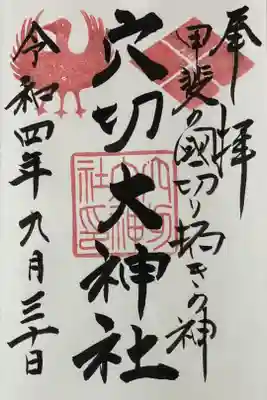 奉拝
甲斐の國切り拓きの神
穴切大神社
令和四年九月三十日